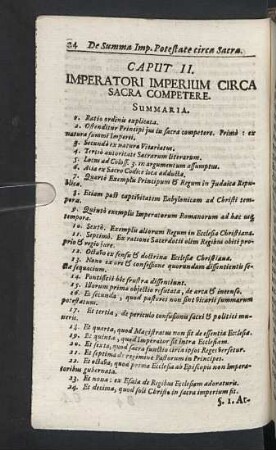 24 De Summa Imp. Potestate circa Sacra.
CAPUT II.
IMPERATORI IMPERIUM CIRCA
SACRA COMPETERE.
SUMMARIA.
1. Ratio ordinis explicata.
2. Ostenditur Principi jus in sacra competere. Primò: ex
natura summi Imperii.
3. Secundò ex natura Veritatis.
4. Tertiò autoritate Sacrarum literarum.
5. Locus ad Coloss. 3. in argumentum assumptus.
6. Alia ex Sacro Codice loca adducta.
7. Quartò Exemplo Principum & Regum in Judaica Repu-
blica.
8. Etiam post captivitatem Babylonicam ad Christi tempo-
ra.
9. Quintò exemplis Imperatorum Romanorum ad hæc usq;
tempora.
10. Sextò. Exemplis aliorum Regum in Ecclesia Christiana.
11. Septimò. Ex ratione Sacerdotii olim Regibus obiti pro-
prio & regio jure.
12. Octavo ex sensu & doctrina Ecclesiæ Christianæ.
13. Nono ex ore & confessione quorundam dissentientis se-
ctæ sequacium.
14. Pontificii hic frustra dissentiunt.
15. Horum prima objectio refutata, de arte & intenso.
16. Et secunda, quod pastores non sint Vicarii summarum
potestatum.
17. Et tertia, de periculo confusionis sacri & politici mu-
neris.
18. Et quarta, quod Magistratus non sit de essentia Ecclesiæ.
19. Et quinta, quod Imperator sit intra Ecclesiam.
20. Et sexta, quod sacra functio circa ipsos Reges versetur.
21. Et septima de regimine Pastorum in Principes.
22. Et octava, quod prima Ecclesia ab Episcopis non Impera-
toribus gubernata.
23. Et nona: ex Esaia de Regibus Ecclesiam adoraturis.
24. Et decima, quod soli Christo in sacra imperium sit.
§. 1. At-